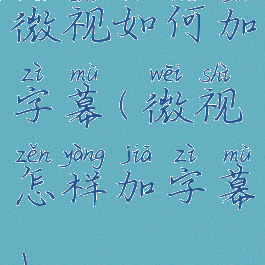 微视如何加
zì mù wēi shì
字幕(微视
zěn yàng jiā zì mù
怎样加字幕
)